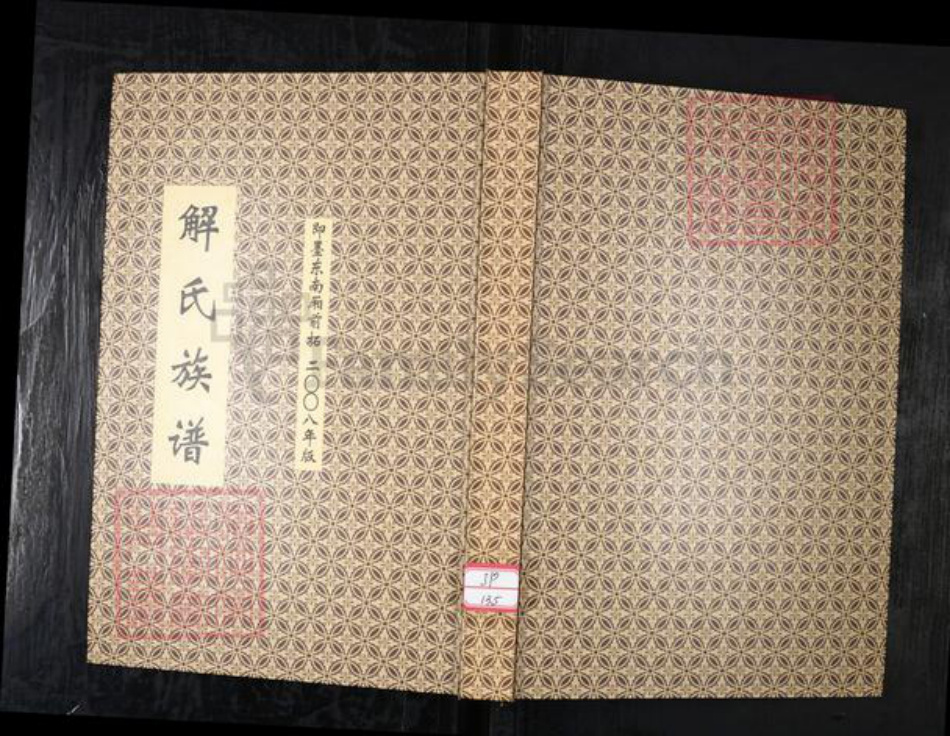 解氏族谱
即墨东南厢前拓 二〇〇八年版
SP
135